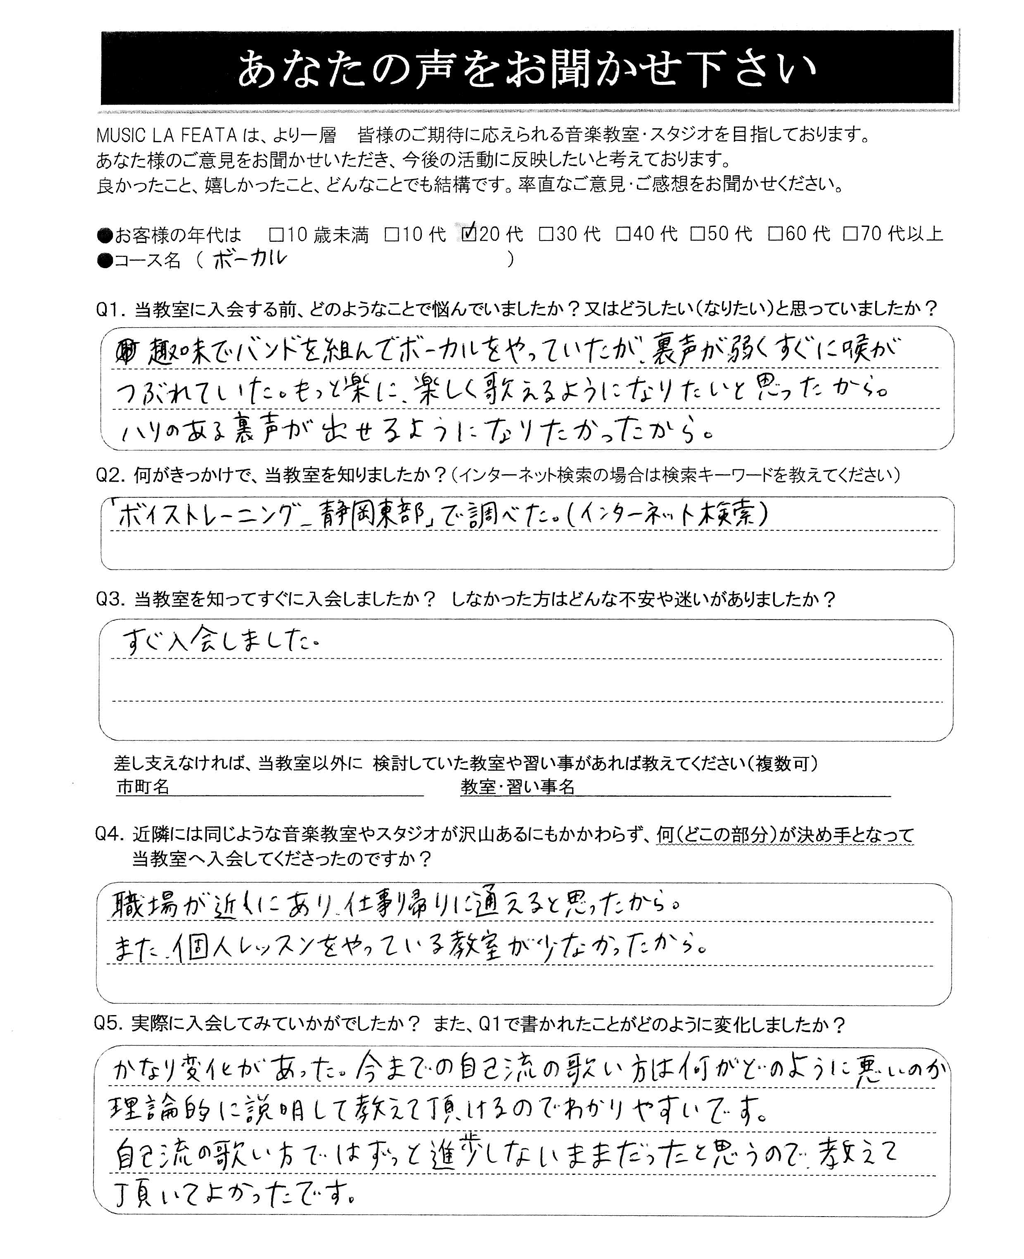 あなたの声をお聞かせ下さい
MUSIC LA FEATA は、より一層　皆様のご期待に応えられる音楽教室・スタジオを目指しております。
あなた様のご意見をお聞かせいただき、今後の活動に反映したいと考えております。
良かったこと、嬉しかったこと、どんなことでも結構です。率直なご意見・ご感想をお聞かせください。
●お客様の年代は　□10 歳未満 □10 代 ☑20 代 □30 代 □40 代 □50 代 □60 代 □70 代以上
●コース名 （ ボーカル ）
Q1. 当教室に入会する前、どのようなことで悩んでいましたか？又はどうしたい（なりたい）と思っていましたか？
趣味でバンドを組んでボーカルをやっていたが、裏声が弱くすぐに喉が
つぶれていた。もっと楽に、楽しく歌えるようになりたいと思ったから。
ハリのある裏声が出せるようになりたかったから。
Q2. 何がきっかけで、当教室を知りましたか？（インターネット検索の場合は検索キーワードを教えてください）
「ボイストレーニング_静岡東部」で調べた。（インターネット検索）
Q3. 当教室を知ってすぐに入会しましたか？　しなかった方はどんな不安や迷いがありましたか？
すぐ入会しました。
差し支えなければ、当教室以外に 検討していた教室や習い事があれば教えてください（複数可）
市町名　教室・習い事名
Q4. 近隣には同じような音楽教室やスタジオが沢山あるにもかかわらず、何（どこの部分）が決め手となって
当教室へ入会してくださったのですか？
職場が近くにあり、仕事帰りに通えると思ったから。
また、個人レッスンをやっている教室が少なかったから。
Q5. 実際に入会してみていかがでしたか？ また、Q1で書かれたことがどのように変化しましたか？
かなり変化があった。今までの自己流の歌い方は何がどのように悪いのか
理論的に説明して教えて頂けるのでわかりやすいです。
自己流の歌い方ではずっと進歩しないままだったと思うので、教えて
頂いてよかったです。